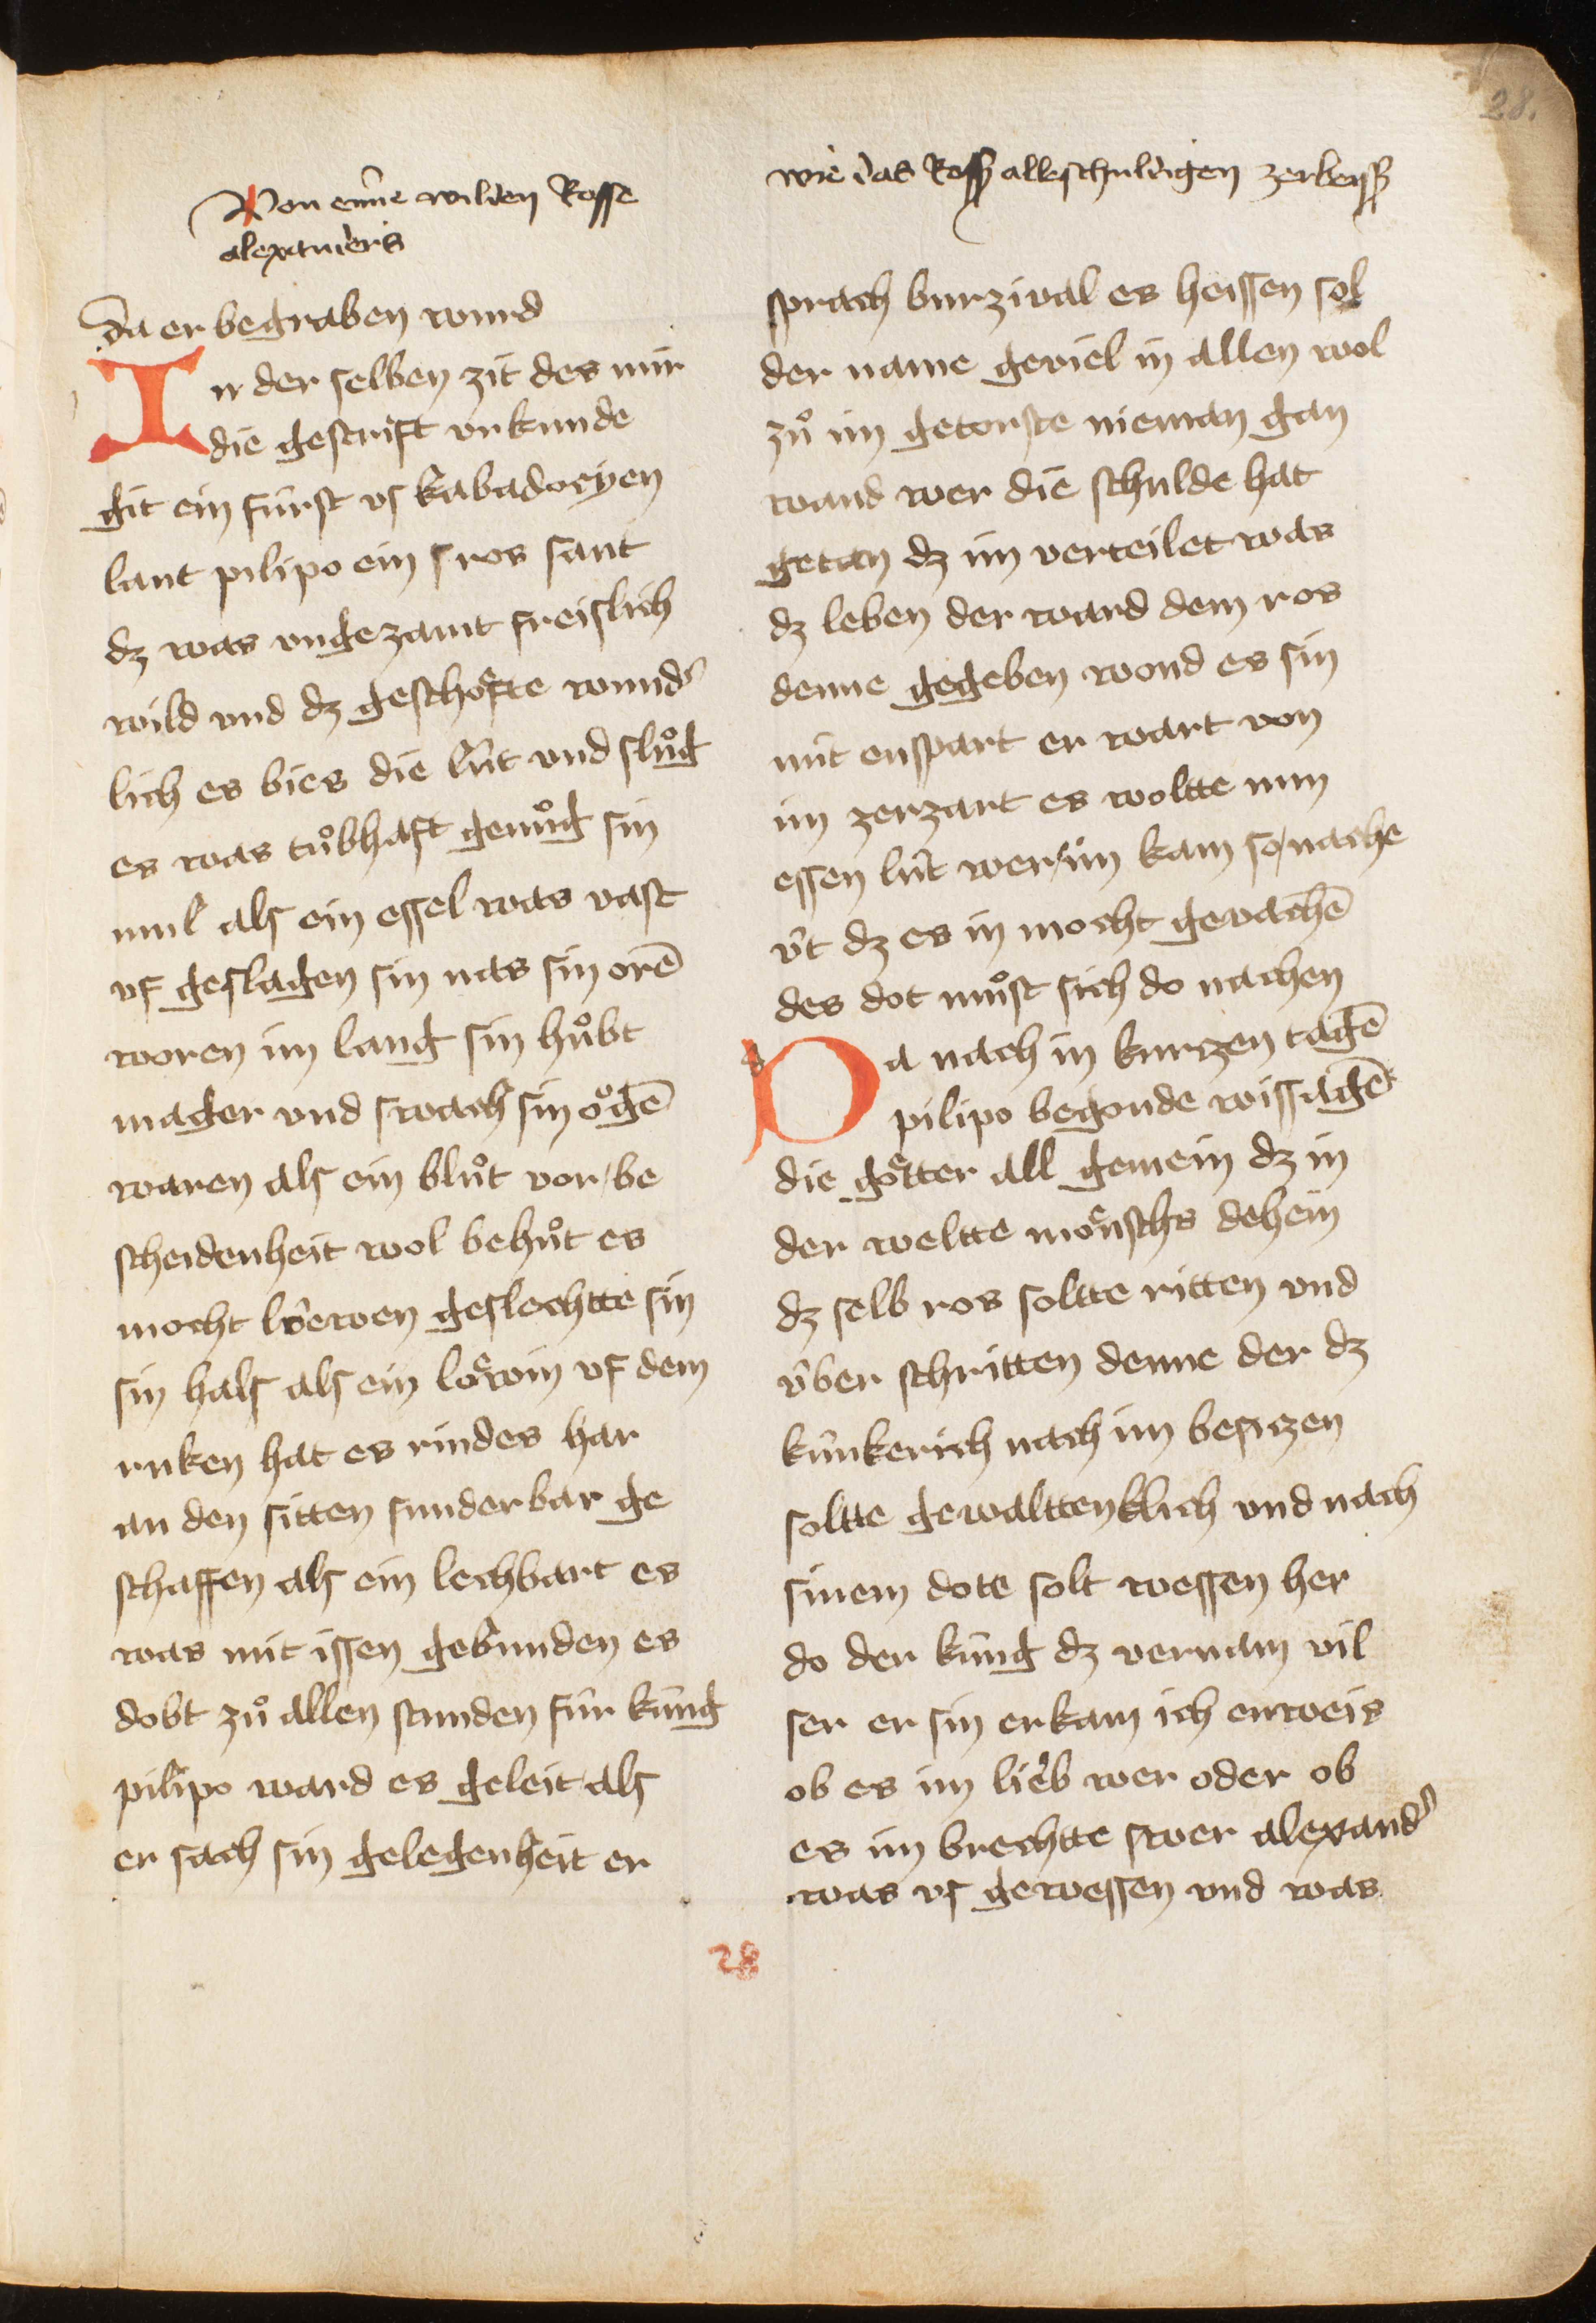 28.
Von eime wilden Rosse
alexanders
da er begraben wurd
In der selben zit des mir
die gescrift vrkunde
git ein fúrst vs kabadocyen
lant pilipo ein sros sant
dz was vngezamt freislich
wild vnd dz geschoͤfte wundˀ
lich es bies die lút vnd sluͦg
es was tuͦbhaft genuͦg sin
mul als ein essel was vast
vf geslagen sin nas sin orē
woren im lang sin huͦbt
mager vnd swach sin oͮgē
waren als ein bluͦt vor be
scheidenheit wol behuͦt es
mocht lvͤwen geslechtte sin
sin hals als ein loͤwin vf dem
ruken hat es rindes har
an den sitten sunderbar ge
schaffen als ein lechbart es
was mit issen gebunden es
dobt zuͦ allen stunden fúr kúng
pilipo ward es geleit als
er sach sin gelegenheit er
wie das Ross alle schuldigen zerbeiss
sprach burzival es heissen sol
der name geviel in allen wol
zuͦ im getorste nieman gan
wand wer die schulde hat
getan dz im verteilet was
dz leben der ward dem ros
denne gegeben wond es sin
nút enspart er wart von
im zerzart es woltte nun
essen lút wer im kam so nache
v́t dz es in mocht gevachē
des dot muͦst sich do nachen
Da nach in kurzen tagē
pilipo begonde wissagē
die goͤtter all gemein dz in
der weltte moͤnschs dehein
dz selb ros soltte ritten vnd
v́ber schritten denne der dz
kúnkerich nach im besizen
soltte gewalttenklich vnd nach
sinem dote solt wessen her
do der kúng dz vernam vil
ser er sin erkam ich enweis
ob es im lieb wer oder ob
es im brechtte swer alexandˀ
was vf gewessen vnd was
28